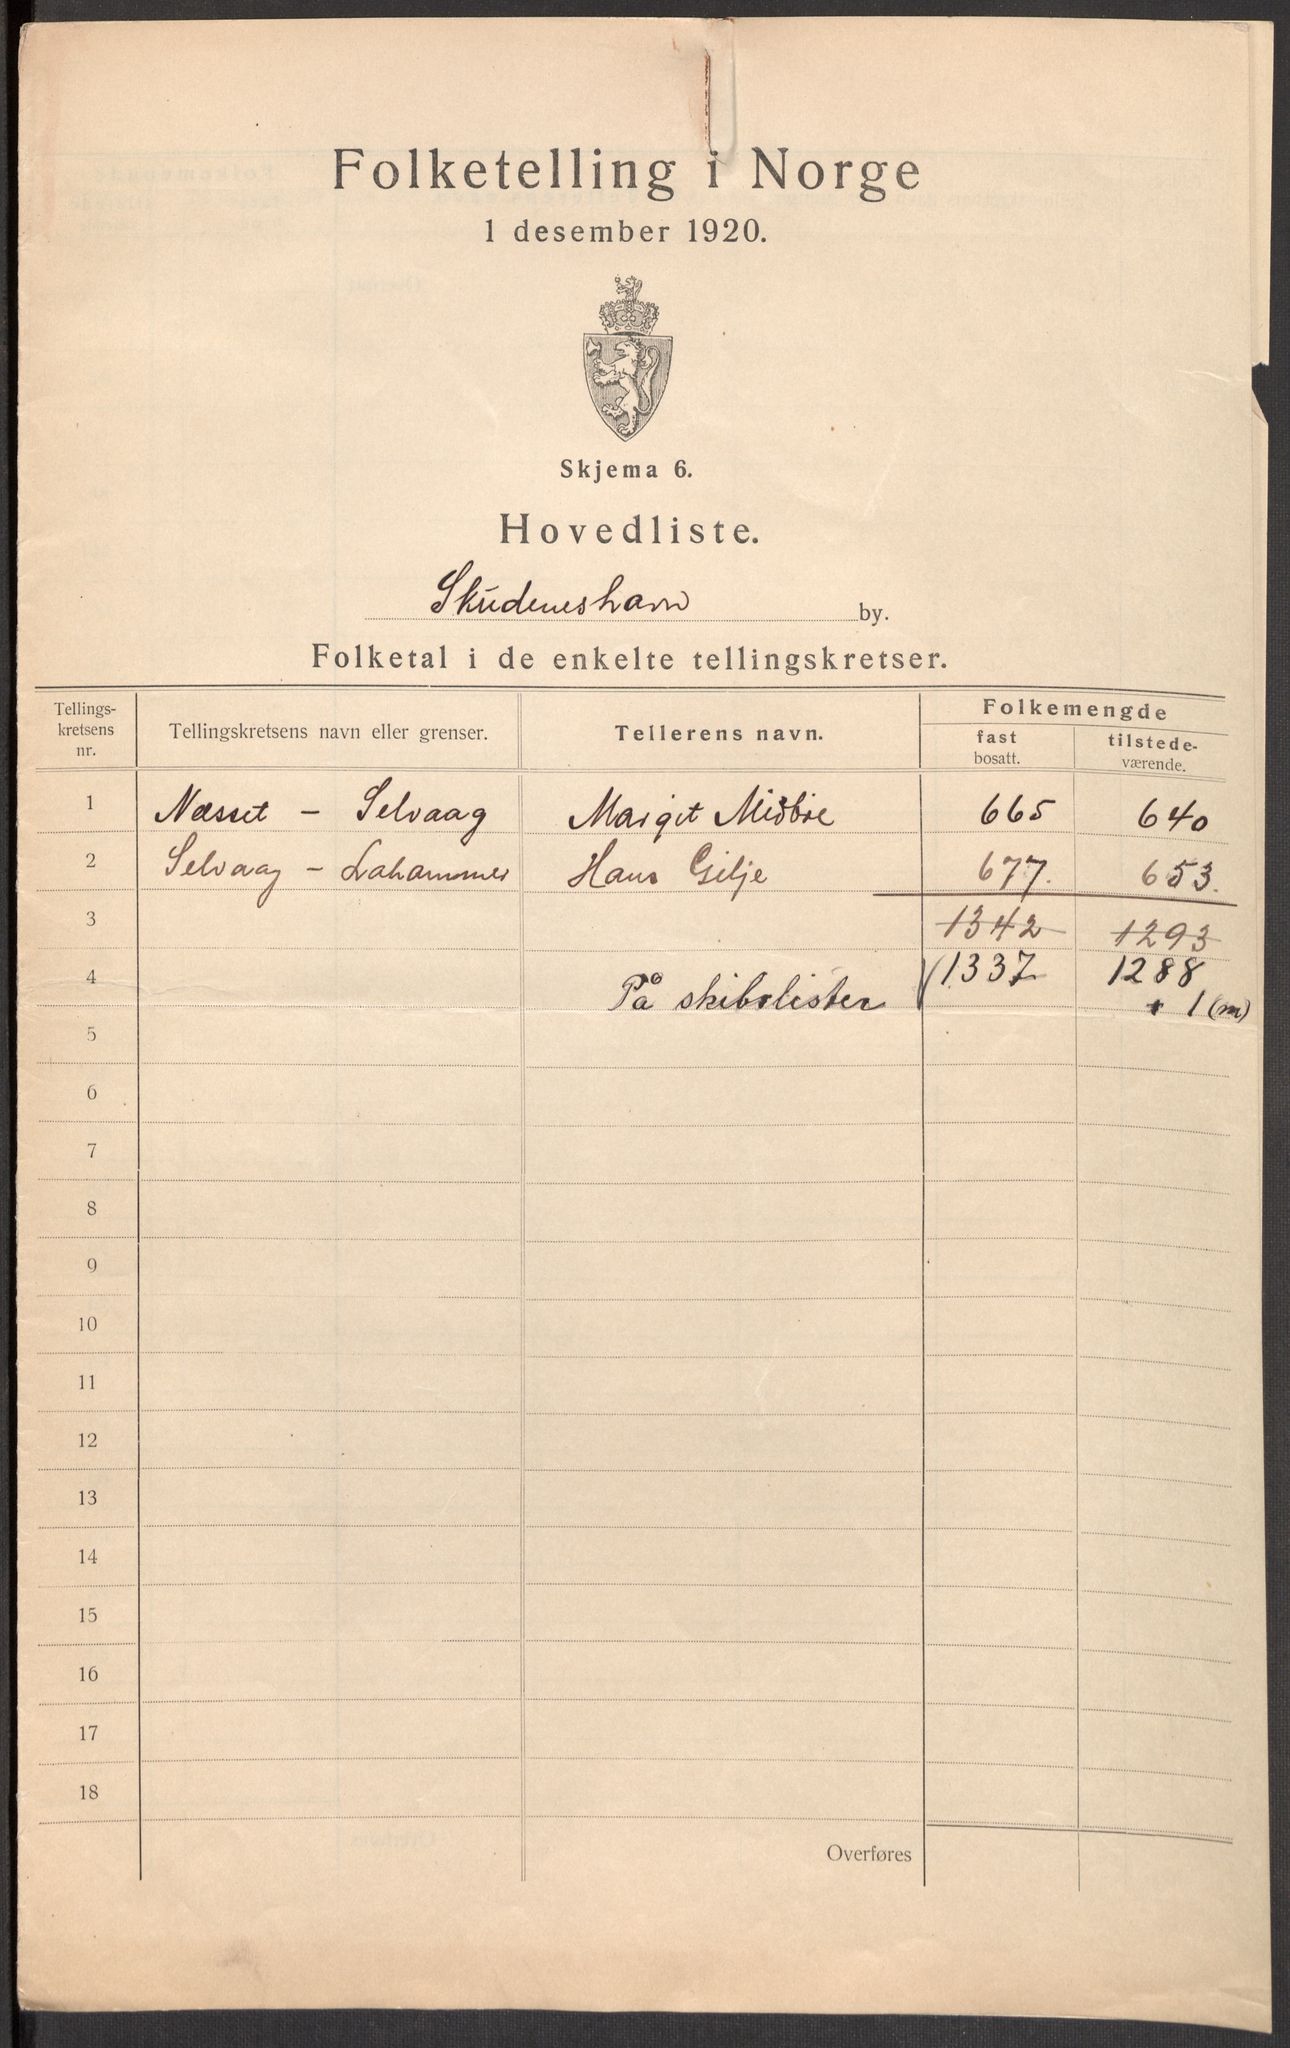 Folketelling i Norge
1 desember 1920.
Skjema 6.
Hovedliste.
Skudeneshavn by.
Folketal i de enkelte tellingskretser.
Tellings-
kretsens
nr.
Tellingskretsens navn eller grenser.
Tellerens navn.
Folkemengde
fast
bosatt.
tilstede-
værende.
1 Næsset - Selvaag Margit Midbøe 665 640
2 Selvaag - Lahammer Hans Gilje 677. 653.
3 1342 1293
4 På skibslister 1337 1288
+ 1 (m)
5
6
7
8
9
10
11
12
13
14
15
16
17
18
Overføres